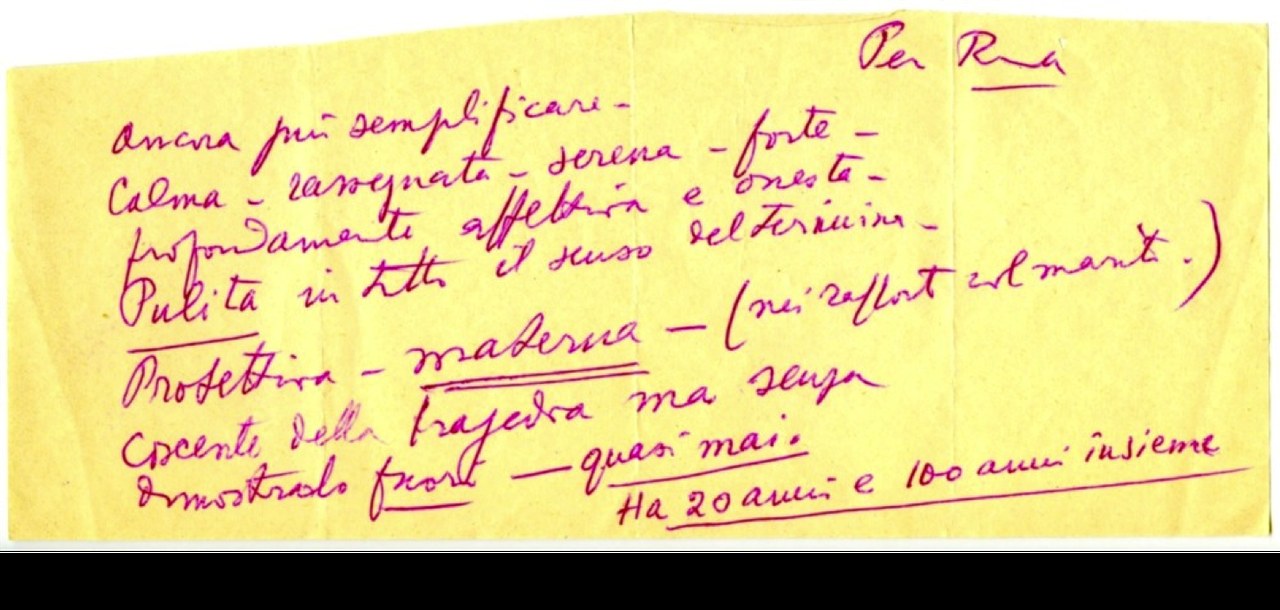 Per Rina
Ancora più semplificare -
Calma - rassegnata - serena - forte -
profondamente affettiva e onesta -
Pulita in tutto il senso del termine -
Protettiva - materna - (nei rapporti col marito.)
Coscente della tragedia ma senza
dimostrarlo fuori - quasi mai.
Ha 20 anni e 100 anni insieme